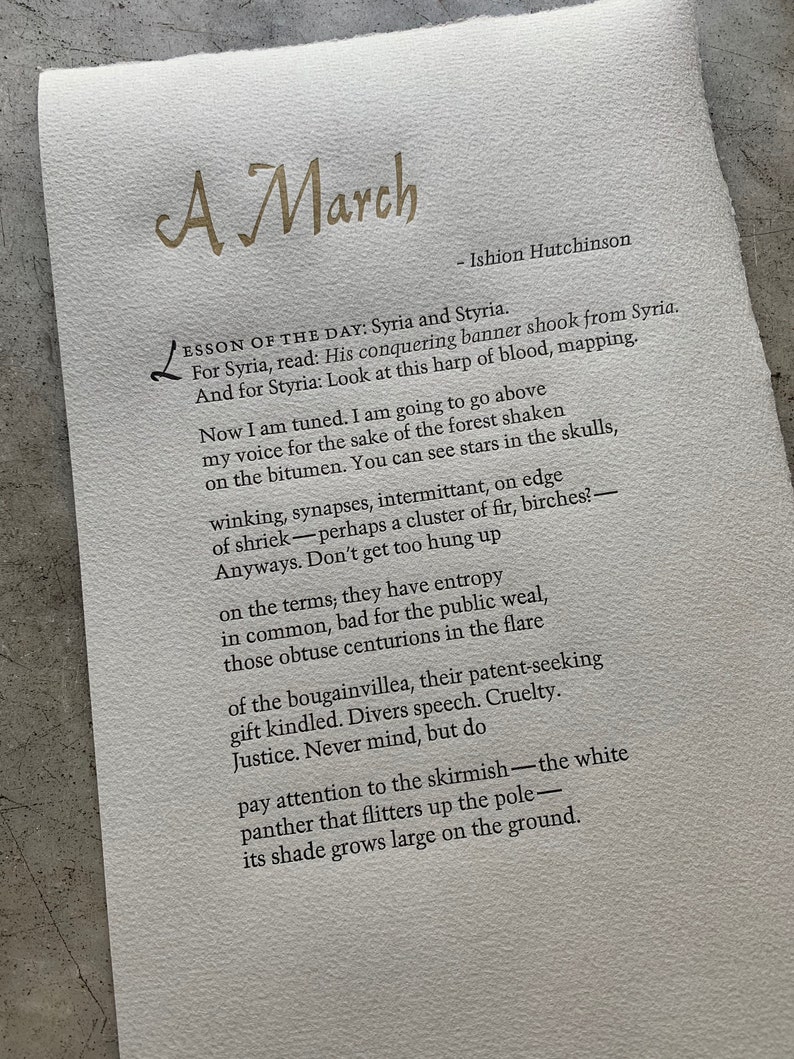 A March
– Ishion Hutchinson
LESSON OF THE DAY: Syria and Styria.
For Syria, read: His conquering banner shook from Syria.
And for Styria: Look at this harp of blood, mapping.
Now I am tuned. I am going to go above
my voice for the sake of the forest shaken
on the bitumen. You can see stars in the skulls,
winking, synapses, intermittent, on edge
of shriek—perhaps a cluster of fir, birches?—
Anyways. Don’t get too hung up
on the terms; they have entropy
in common, bad for the public weal,
those obtuse centurions in the flare
of the bougainvillea, their patent-seeking
gift kindled. Divers speech. Cruelty.
Justice. Never mind, but do
pay attention to the skirmish—the white
panther that flitters up the pole—
its shade grows large on the ground.